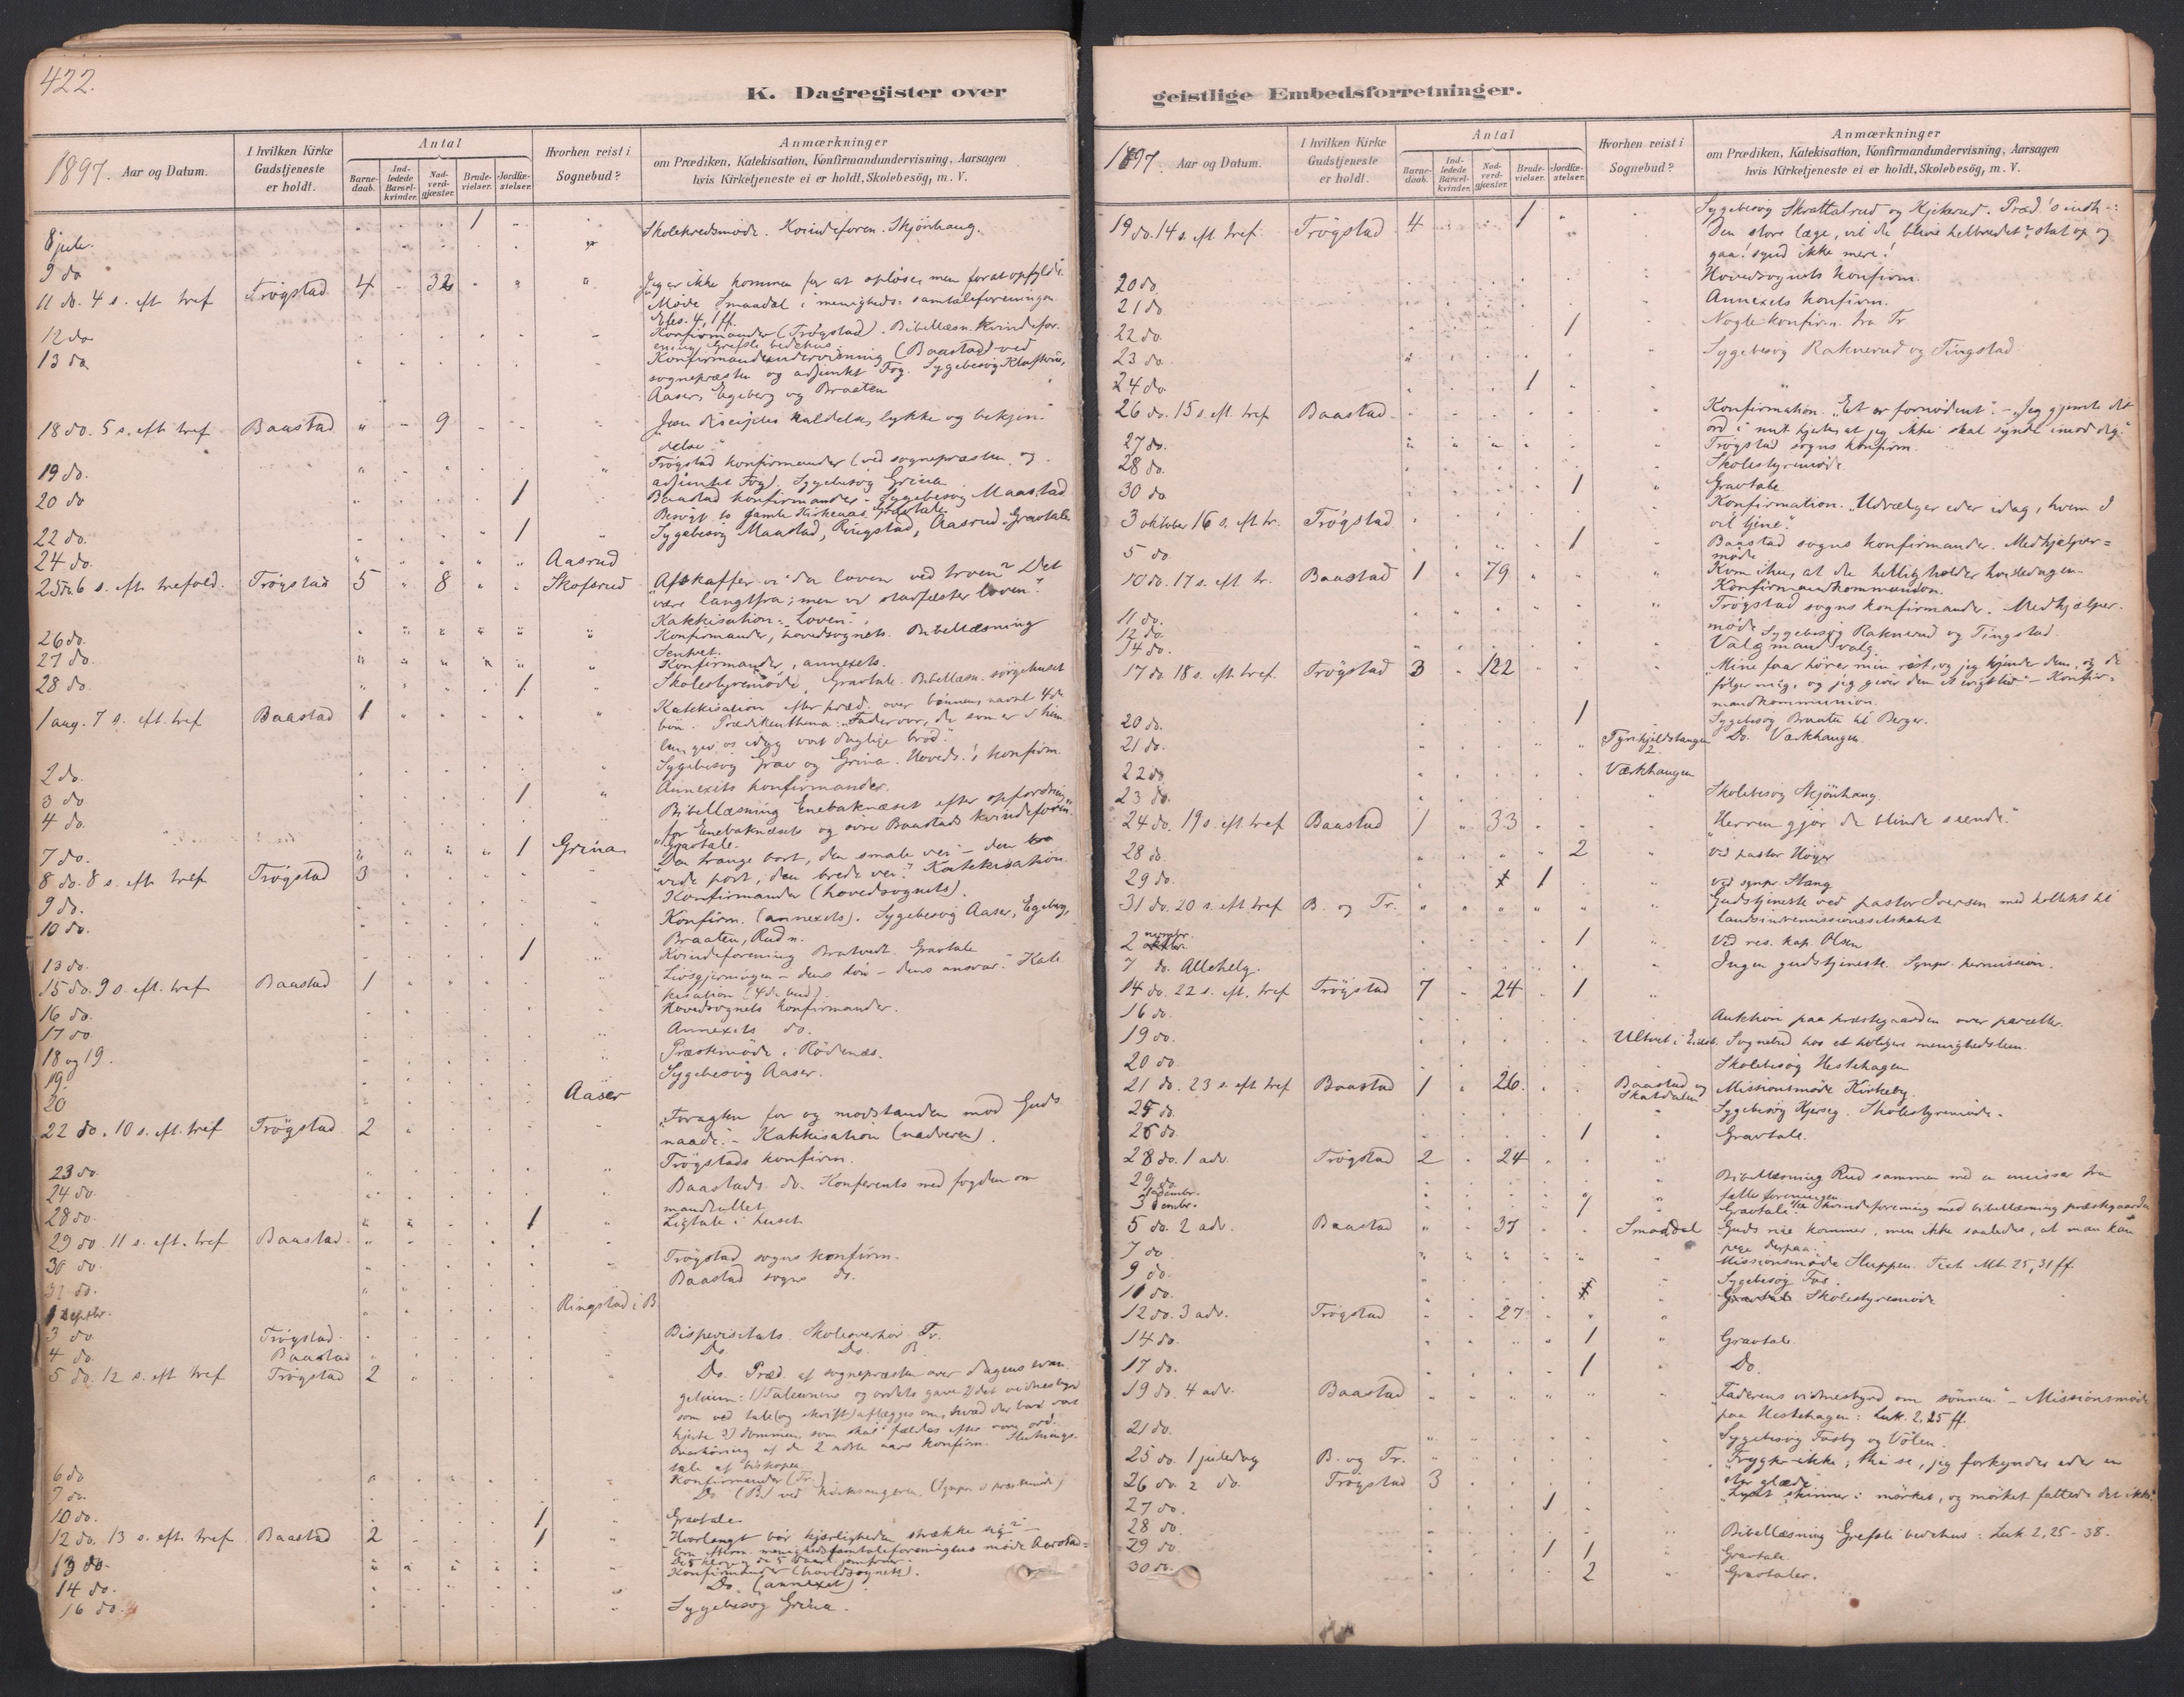 422.
K. Dagregister over
1897. Aar og Datum.
I hvilken Kirke Gudstjeneste er holdt.
Antal
Barnedaab.
Indledede Barselkvinder.
Nadverdgjæster.
Brudevielser.
Jordfæstelser.
Hvorhen reist i Sognebud?
Anmærkninger
om Prædiken, Katekisation, Konfirmandundervisning, Aarsagen
hvis Kirketjeneste ei er holdt, Skolebesög, m. V.
8 juli. 1 Skolekredsmøde. Kvindeforen. Skjönhaug.
9 do
11 do. 4 s. eft tref Trögstad 4 32 Jeg er ikke kommen for at opløse, men for at opfylde.
Møde Smaadal i menigheds: samtaleforeningen
Efes. 4, 1 ff.
12 do Konfirmander (Trögstad). Bibellæsn. Kvindefor-
ening Grefsli bedehus
13 do Konfirmandundervisning (Baastad) ved
sognepræsten og adjunkt Fog. Sygebesög
Aaser, Egeberg og Braaten
18 do. 5 s. eft tref Baastad 9 Jesu disciples kaldelse, lykke og bekjen-
delse."
19 do. Trögstad konfirmander (ved sognepræsten og
adjunkt Fog). Sygebesøg Grina
20 do 1 Baastad konfirmander - Sygebesøg Maastad
22 do. 1 Sygebesög Maastad, Ringstad, Aasrud. Gravtale
24 do. Aasrud
25 do 6 s. eft trefold. Trögstad 5 8 Skofsrud "Afskaffer vi da loven ved troen? Det
være langtfra; men vi stadfæster loven".
Katekisation: "Loven".
26 do. Konfirmander, hovedsognets. Bibellæsning
27 do. Konfirmander, annexets.
28 do. 1 Skolestyremøde, Gravtale. Bibellæsn. sørgehuset
1 aug. 7 s. eft. tref Baastad 1 Katekisation efter præd. over bønnens navnl 4de
bön. Prædikenthema: "Fader vor, du som er i him
len, giv os idag vort daglige bröd."
2 do. Sygebesøg Grav og Grina. Hoveds. s konfirm.
3 do 1 Annexets konfirmander.
4 do. Bibellæsning Enebaknæset efter opfordring
for Enebaknæsets og övre Baastads kvindeforen.
7 do. 1 Grina Gravtale.
8 do. 8 s. eft tref Trögstad 3 "Den trange port, den smale vei - den
vide port, den brede vei." Katekisation
9 do. Konfirmander (hovedsognets).
10 do. Konfirm. (annexets). Sygebesøg Aaser, Egeberg,
Braaten, Rud n.
13 do. 1 Kvindeforening Bratvedt. Gravtale
15 do. 9 s. eft. tref Baastad 1 Livsgjerningen - dens lön - dens ansvar." Kate
kisation (4de bud).
16 do. Hovedsognets konfirmander.
17 do Annexets do.
18 og 19. Præstemöde i Rödenæs.
19 Sygebesøg Aaser.
20 Aaser
22 do. 10 s. eft. tref Trögstad 2 "Foragten for og modstanden mod Guds
naade." - Katekisation (nadveren).
23 do. Trögstads konfirm.
24 do. Baastads do. Konferents med fogden om
mandtallet
28 do. 1 Ligtale i huset
29 do. 11 s. eft. tref Baastad
30 do. Trögstad sogns konfirm.
31 do. Baastad sogns do.
1 septbr. Ringstad i B
3 do Trögstad. Bispevisitats. Skoleoverhör Tr.
4 do. Baastad Do Do. B
5 do. 12 s. eft tref Trögstad 2 Do. Præd. af sognepræsten over dagens evan
gelium: 1) Talemens og ordets gave 2) det vidnesbyrd
som ved tale (og skrift) aflægges om, hvad der bor i vort
hjerte 3) dommen, som skal fældes efter vore ord.
Overhøring af de 2 sidste aars konfirm. Slutnings-
tale af biskopen
6 do Konfirmander (Tr.)
7 do. Do (B.) ved kirkesangeren. (Sognepr. i præstemöde)
10 do. 1 Gravtale
12 do. 13 s. eft tref Baastad 2 1 "Hvorlangt bör kjærligheden strække sig?" -
13 do. Konfirmander (hovedsognets).
14 do. Do. (annexet)
16 do. Sygebesøg Grina.
geistlige Embedsforretninger.
1897. Aar og Datum.
I hvilken Kirke Gudstjeneste er holdt.
Antal
Barnedaab.
Indledede Barselkvinder.
Nadverdgjæster.
Brudevielser.
Jordfæstelser.
Hvorhen reist i Sognebud?
Anmærkninger
om Prædiken, Katekisation, Konfirmandundervisning, Aarsagen
hvis Kirketjeneste ei er holdt, Skolebesög, m. V.
19 do. 14 s. eft. tref Trögstad 4 1 Sygebesög Skrattalsrud og Kjekerud. Præd.'s indh.:
Den store læge, vil du blive helbredet?, stat op og
gaa! synd ikke mere!
20 do. Hovedsognets konfirm.
21 do. Annexets konfirm.
22 do. 1 Nogle konfirm. fra Tr
23 do. Sygebesög Raknerud og Tingstad
24 do. 1
26 do. 15 s. eft. tref Baastad Konfirmation. "Et er fornødent". - "Jeg gjemte dit
ord i mit hjerte, at jeg ikke skal synde imod dig."
27 do. Trögstad sogns konfirm.
28 do. Skolestyremøde.
30 do 1 Gravtale
3 oktober 16 s. eft. tr. Trögstad Konfirmation. "Udvælger eder idag, hvem I
vil tjene".
5 do. 1 Baastad sogns konfirmander. Medhjælper-
møde
10 do. 17 s. eft tr. Baastad 1 79 Kom ihu, at du helligholder hviledagen.
Konfirmandkommunion.
11 do. Trögstad sogns konfirmander. Medhjælper-
12 do. møde Sygebesög Raknerud og Tingstad.
14 do. Valgmandsvalg.
17 do. 18 s. eft tref. Trögstad 3 122 Mine faar hörer min röst, og jeg kjender dem, og de
følger mig, og jeg giver dem et evigt liv" - Konfir-
mandkommunion.
20 do. 1 Sygebesøg Braaten til Berger.
21 do. Fyrihjeldshaugen 2. Do. Værkhaugen
22 do Værkhaugen
23 do. Skolebesög Skjönhaug
24 do. 19 s. eft. tref Baastad 1 33 "Herren gjør de blinde seende."
28 do. 2 Ved pastor Höyer
29 do. 1 ved sognpr. Stang
31 do. 20 s. eft tref B. og Tr. Gudstjeneste ved pastor Iversen med kollekt til
landsindremissionsselskabet
2 novembr. 1 Ved res. kap. Olsen
7 do. Allehelg. Ingen gudstjeneste. Sognpr. permission.
14 do. 22 s. eft. tref Trögstad 7 24 1
16 do. Auktion paa præstegaarden over parceller
19 do. Ultvet i Eidsb. Sognebud hos et tidligere menighedslem.
20 do. Skolebesög Hestehagen
21 do. 23 s. eft tref Baastad 1 26 Baastad og Skatdalen Missionsmøde Kirkeby.
25 do. Sygebesög Kjerseg. Skolestyremøde.
26 do. 1 Gravtale.
28 do. 1 adv. Trögstad 2 24
29 do. Bibellæsning Rud sammen med en emissær fra
fællesforeningen
3 decembr. 1 Gravtale. Kvindeforening med bibellæsning præstegaarden
5 do. 2 adv. Baastad 37 Smaadal Guds rige kommer, men ikke saaledes, at man kan
pege derpaa."
7 do Missionsmøde Huppen. Text Mt. 25, 31 ff
9 do. Sygebesøg Fos.
10 do. Gravtale Skolestyremøde
12 do. 3 adv. Trögstad 27
14 do. 1 Gravtale.
17 do. 1 Do.
19 do. 4 adv. Baastad "Faderens vidnesbyrd om sönnen." - Missionsmøde
paa Hestehagen: Luk. 2, 25 ff.
21 do. Sygebesøg Fosby og Völen.
25 do. 1 juledag B. og Tr. "Frygter ikke; thi se, jeg forkynder eder en
stor glæde"
26 do. 2 do. Trögstad 3 "Lyset skinner i mörket, og mörket fattede det ikke."
27 do. 1
28 do. Bibellæsning Grefsli bedehus: Luk 2, 25-38.
29 do 1 1 Gravtale.
30 do. 2 Gravtaler.